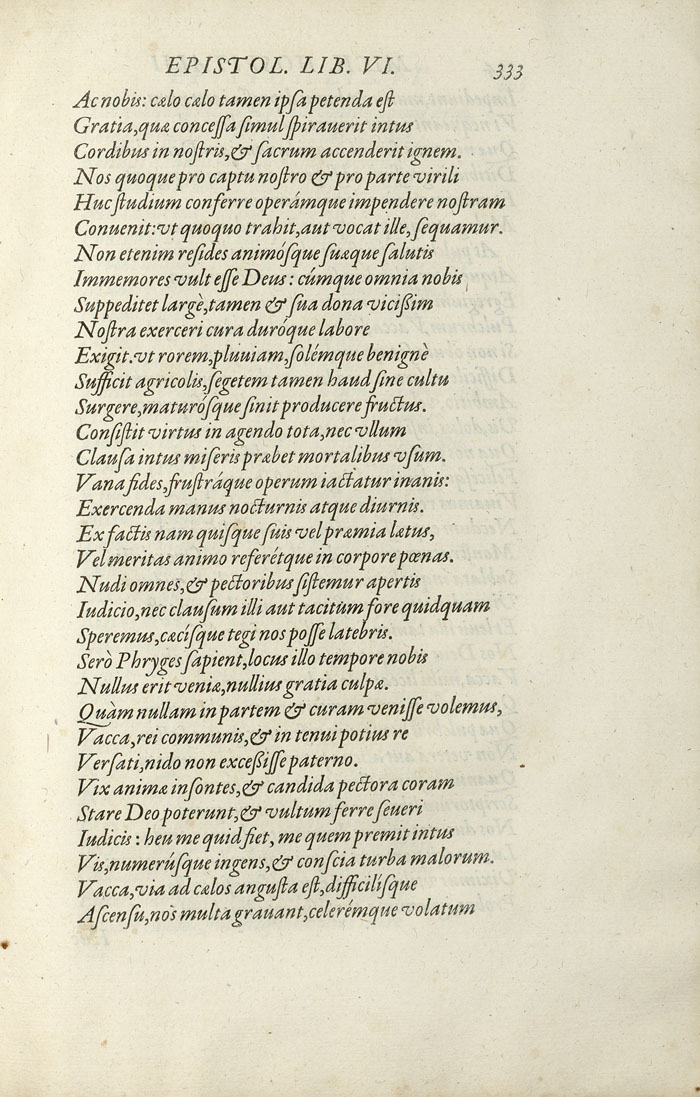 EPISTOL. LIB. VI. 333
Ac nobis: cælo cælo tamen ipſa petenda eſt
Gratia, quæ conceſſa ſimul ſpirauerit intus
Cordibus in noſtris, & ſacrum accenderit ignem.
Nos quoque pro captu noſtro & pro parte virili
Huc ſtudium conferre operámque impendere noſtram
Conuenit: vt quoquo trahit, aut vocat ille, ſequamur.
Non etenim reſides animóſque ſuæque ſalutis
Immemores vult eſſe Deus: cúmque omnia nobis
Suppeditet largè, tamen & ſua dona vicißim
Noſtra exerceri cura duróque labore
Exigit. vt rorem, pluuiam, ſolémque benignè
Sufficit agricolis, ſegetem tamen haud ſine cultu
Surgere, maturóſque ſinit producere fructus.
Conſiſtit virtus in agendo tota, nec vllum
Clauſa intus miſeris præbet mortalibus vſum.
Vana fides, fruſtráque operum iactatur inanis:
Exercenda manus nocturnis atque diurnis.
Ex factis nam quiſque ſuis vel præmia lætus,
Vel meritas animo referétque in corpore pœnas.
Nudi omnes, & pectoribus ſiſtemur apertis
Iudicio, nec clauſum illi aut tacitum fore quidquam
Speremus, cæcíſque tegi nos poſſe latebris.
Serò Phryges ſapient, locus illo tempore nobis
Nullus erit veniæ, nullius gratia culpæ.
Quàm nullam in partem & curam veniſſe volemus,
Vacca, rei communis, & in tenui potius re
Verſati, nido non exceßiſſe paterno.
Vix animæ inſontes, & candida pectora coram
Stare Deo poterunt, & vultum ferre ſeueri
Iudicis: heu me quid fiet, me quem premit intus
Vis, numerúſque ingens, & conſcia turba malorum.
Vacca, via ad cælos anguſta eſt, difficilíſque
Aſcenſu, nos multa grauant, celerémque volatum